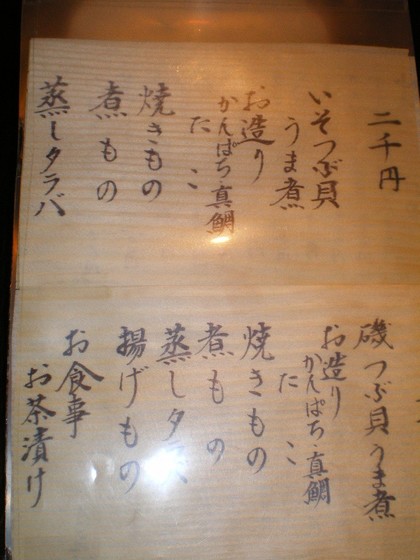 二千円
いそつぶ貝
うま煮
お造り
かんぱち真鯛
たこ
焼きもの
煮もの
蒸しタラバ
磯つぶ貝うま煮
お造り
かんぱち・真鯛
たこ
焼きもの
煮もの
蒸しタラバ
揚げもの
お食事
お茶漬け